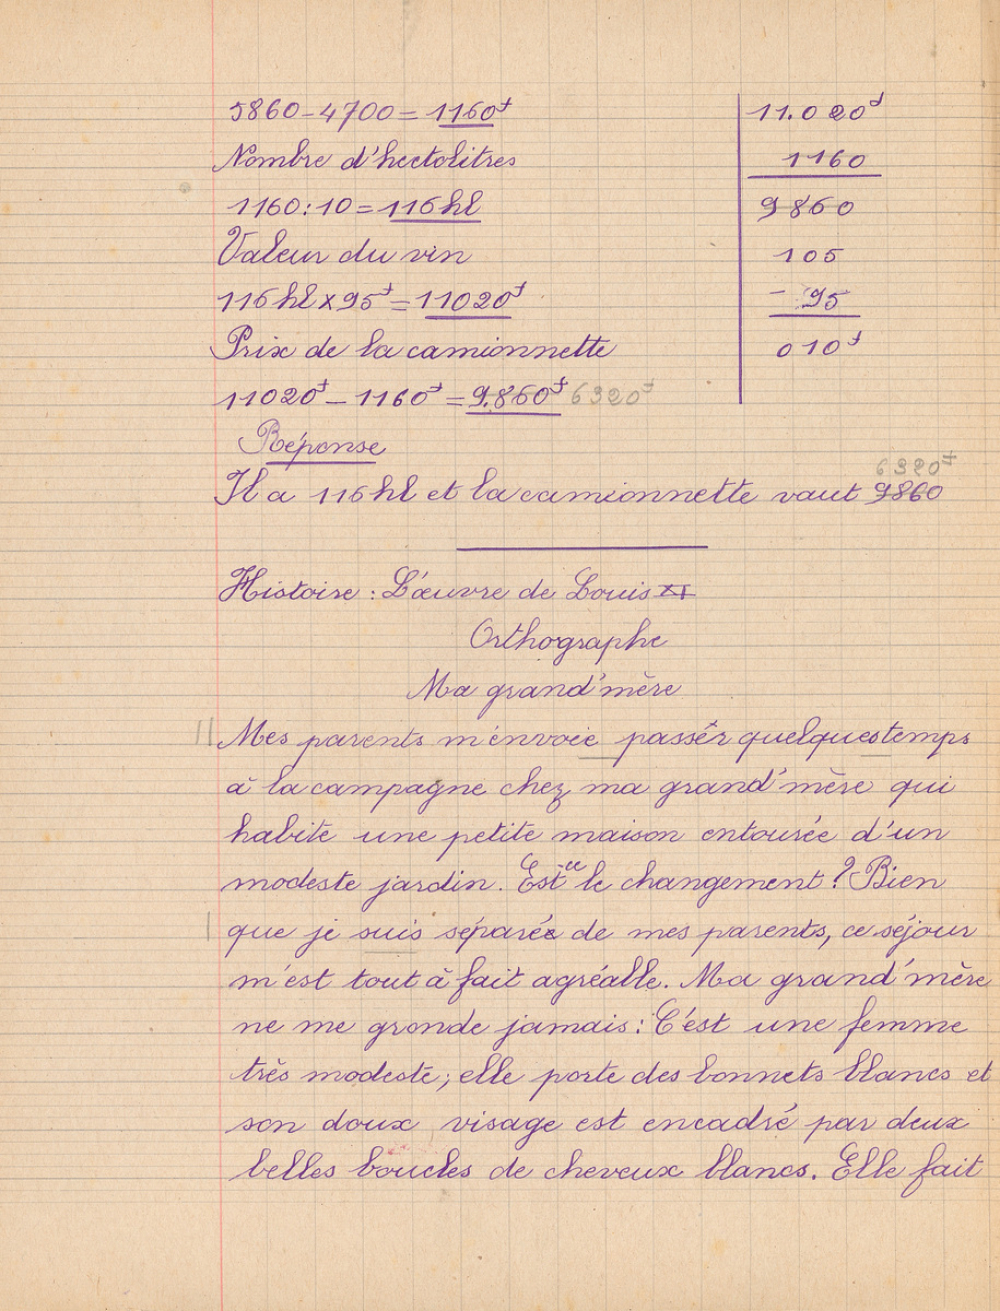 5860 - 4700 = 1160f
Nombre d'hectolitres
1160 : 10 = 116 hl
Valeur du vin
116 hl x 95f = 11020f
Prix de la camionnette
11020f - 1160f = 9.860f 6320f
Réponse
6320f
Il a 116 hl et la camionnette vaut 9860
11.020f
1160
9860
105
- 95
010f
Histoire : L'œuvre de Louis XI
Orthographe
Ma grand'mère
|| Mes parents m'envoie passer quelques temps
à la campagne chez ma grand'mère qui
habite une petite maison entourée d'un
modeste jardin. Est-ce le changement ? Bien
| que je suis séparée de mes parents, ce séjour
m'est tout à fait agréable. Ma grand'mère
ne me gronde jamais : C'est une femme
très modeste ; elle porte des bonnets blancs et
son doux visage est encadré par deux
belles boucles de cheveux blancs. Elle fait